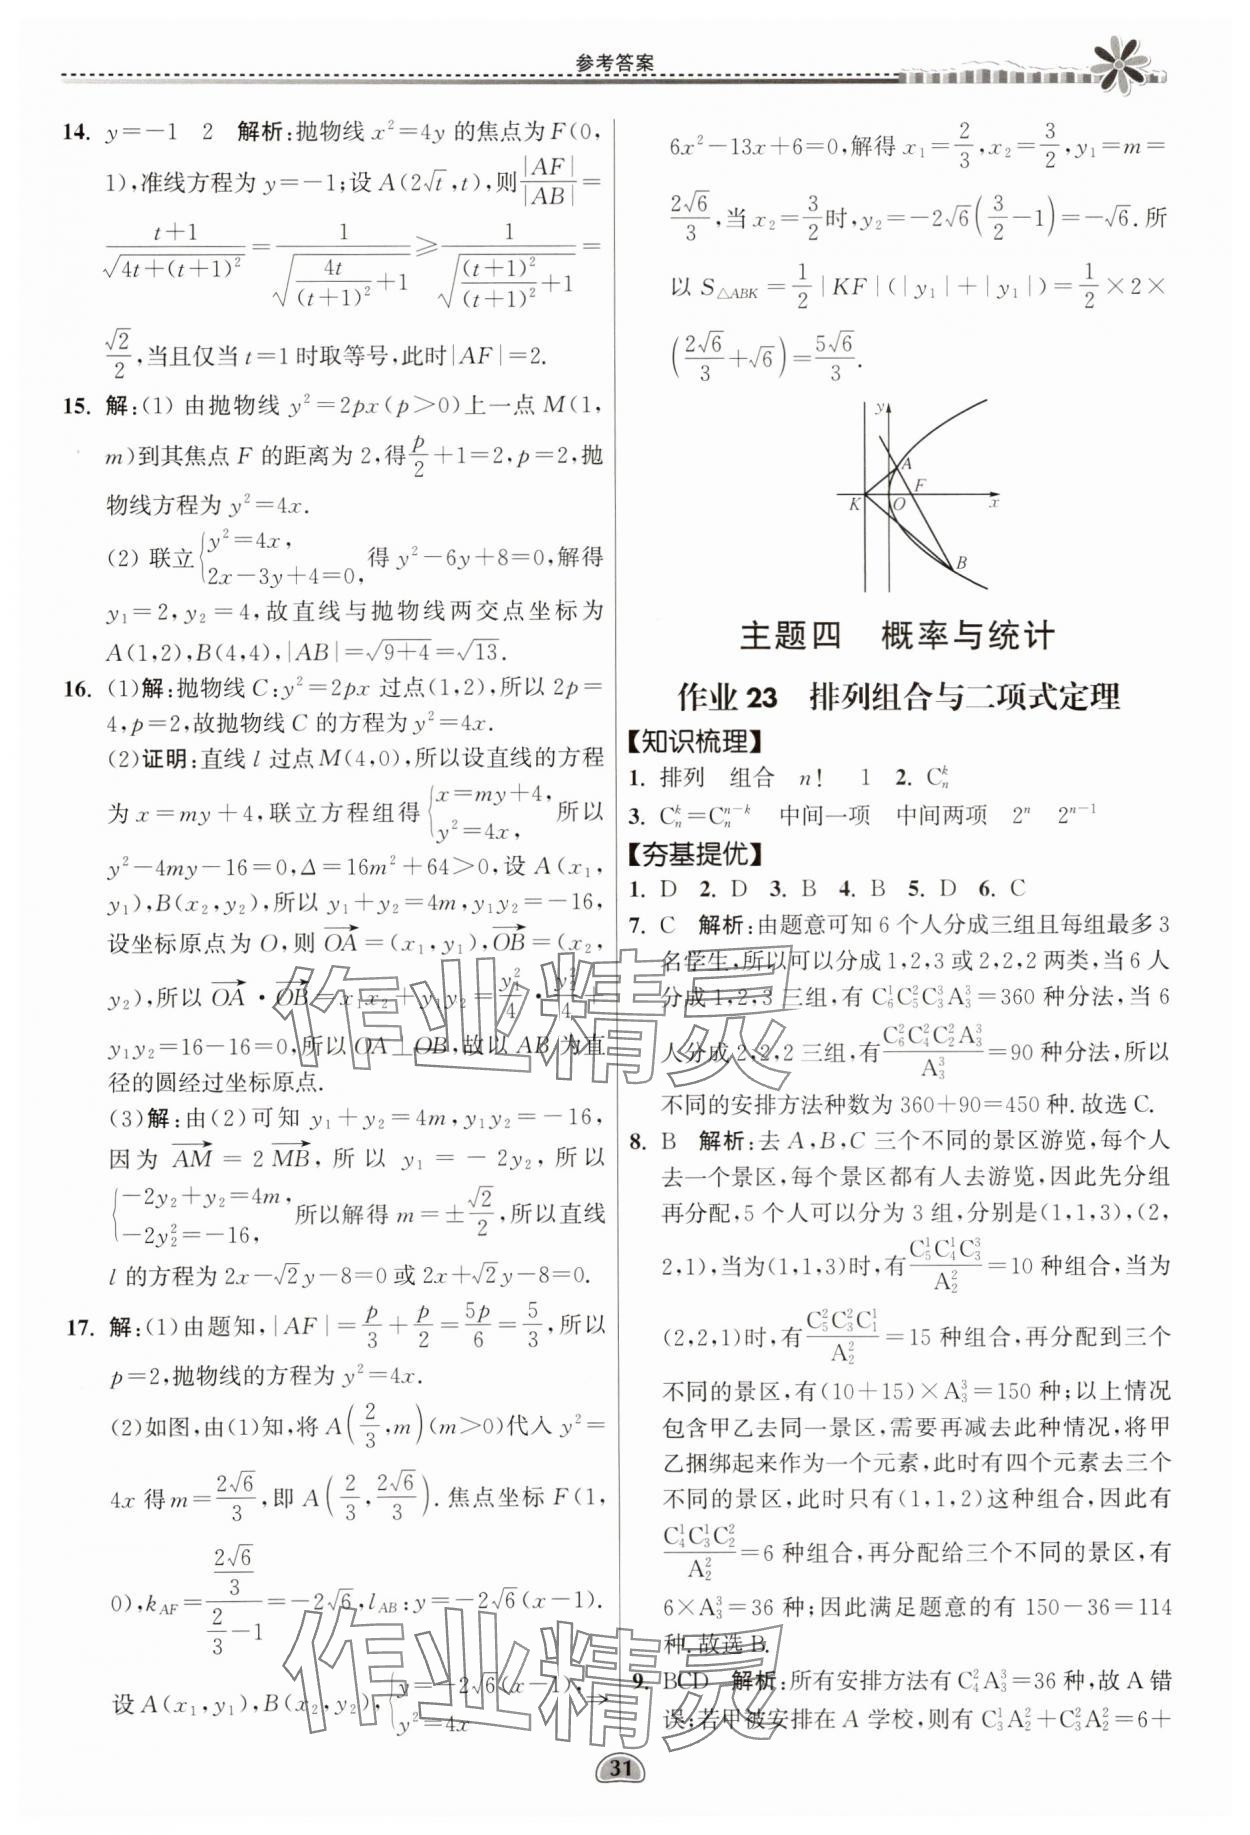 参考答案
14. y=-1　2　解析:抛物线 x²=4y 的焦点为 F(0,
1),准线方程为 y=-1;设 A(2√t,t),则|AF|/|AB|=
(t+1)/√(4t+(t+1)²)=1/√(4t/(t+1)²+1)≥1/√((t+1)²/(t+1)²+1)=
√2/2,当且仅当 t=1 时取等号,此时|AF|=2.
15. 解:(1) 由抛物线 y²=2px(p>0)上一点 M(1,
m)到其焦点 F 的距离为 2,得p/2+1=2,p=2,抛
物线方程为 y²=4x.
(2) 联立{y²=4x, 2x-3y+4=0, 得 y²-6y+8=0,解得
y₁=2,y₂=4,故直线与抛物线两交点坐标为
A(1,2),B(4,4),|AB|=√(9+4)=√13.
16. (1)解:抛物线 C:y²=2px 过点(1,2),所以 2p=
4,p=2,故抛物线 C 的方程为 y²=4x.
(2)证明:直线 l 过点 M(4,0),所以设直线的方程
为 x=my+4,联立方程组得{x=my+4, y²=4x, 所以
y²-4my-16=0,Δ=16m²+64>0,设 A(x₁,
y₁),B(x₂,y₂),所以 y₁+y₂=4m,y₁y₂=-16,
设坐标原点为 O,则 →OA=(x₁,y₁),→OB=(x₂,
y₂),所以 →OA·→OB=x₁x₂+y₁y₂=y₁²/4·y₂²/4+
y₁y₂=16-16=0,所以 OA⊥OB,故以 AB 为直
径的圆经过坐标原点.
(3)解:由(2)可知 y₁+y₂=4m,y₁y₂=-16,
因为 →AM=2→MB,所以 y₁=-2y₂,所以
{-2y₂+y₂=4m, -2y₂²=-16, 所以解得 m=±√2/2,所以直线
l 的方程为 2x-√2y-8=0 或 2x+√2y-8=0.
17. 解:(1)由题知,|AF|=p/3+p/2=5p/6=5/3,所以
p=2,抛物线的方程为 y²=4x.
(2)如图,由(1)知,将 A(2/3,m)(m>0)代入 y²=
4x 得 m=2√6/3,即 A(2/3,2√6/3).焦点坐标 F(1,
0),k_AF=(2√6/3)/(2/3-1)=-2√6,l_AB:y=-2√6(x-1).
设 A(x₁,y₁),B(x₂,y₂),{y=-2√6(x-1), y²=4x ⇒
6x²-13x+6=0,解得 x₁=2/3,x₂=3/2,y₁=m=
2√6/3,当 x₂=3/2时,y₂=-2√6(3/2-1)=-√6.所
以 S△ABK=1/2|KF|(|y₁|+|y₁|)=1/2×2×
(2√6/3+√6)=5√6/3.
y
A
F
K
O
x
B
主题四　概率与统计
作业 23　排列组合与二项式定理
【知识梳理】
1. 排列　组合　n!　1　2. Cₙᵏ
3. Cₙᵏ=Cₙⁿ⁻ᵏ　中间一项　中间两项　2ⁿ　2ⁿ⁻¹
【夯基提优】
1. D　2. D　3. B　4. B　5. D　6. C
7. C　解析:由题意可知 6 个人分成三组且每组最多 3
名学生,所以可以分成 1,2,3 或 2,2,2 两类,当 6 人
分成 1,2,3 三组,有 C₆¹C₅²C₃³A₃³=360 种分法,当 6
人分成 2,2,2 三组,有 C₆²C₄²C₂²A₃³/A₃³=90 种分法,所以
不同的安排方法种数为 360+90=450 种.故选 C.
8. B　解析:去 A,B,C 三个不同的景区游览,每个人
去一个景区,每个景区都有人去游览,因此先分组
再分配,5 个人可以分为 3 组,分别是(1,1,3),(2,
2,1),当为(1,1,3)时,有 C₅¹C₄¹C₃³/A₂²=10 种组合,当为
(2,2,1)时,有 C₅²C₃²C₁¹/A₂²=15 种组合,再分配到三个
不同的景区,有(10+15)×A₃³=150 种;以上情况
包含甲乙去同一景区,需要再减去此种情况,将甲
乙捆绑起来作为一个元素,此时有四个元素去三个
不同的景区,此时只有(1,1,2)这种组合,因此有
C₄¹C₃¹C₂²/A₂²=6 种组合,再分配给三个不同的景区,有
6×A₃³=36 种;因此满足题意的有 150-36=114
种.故选 B.
9. BCD　解析:所有安排方法有 C₄²A₃³=36 种,故 A 错
误;若甲被安排在 A 学校,则有 C₃¹A₂²+C₃²A₂²=6+
31
作业精灵
作业精灵